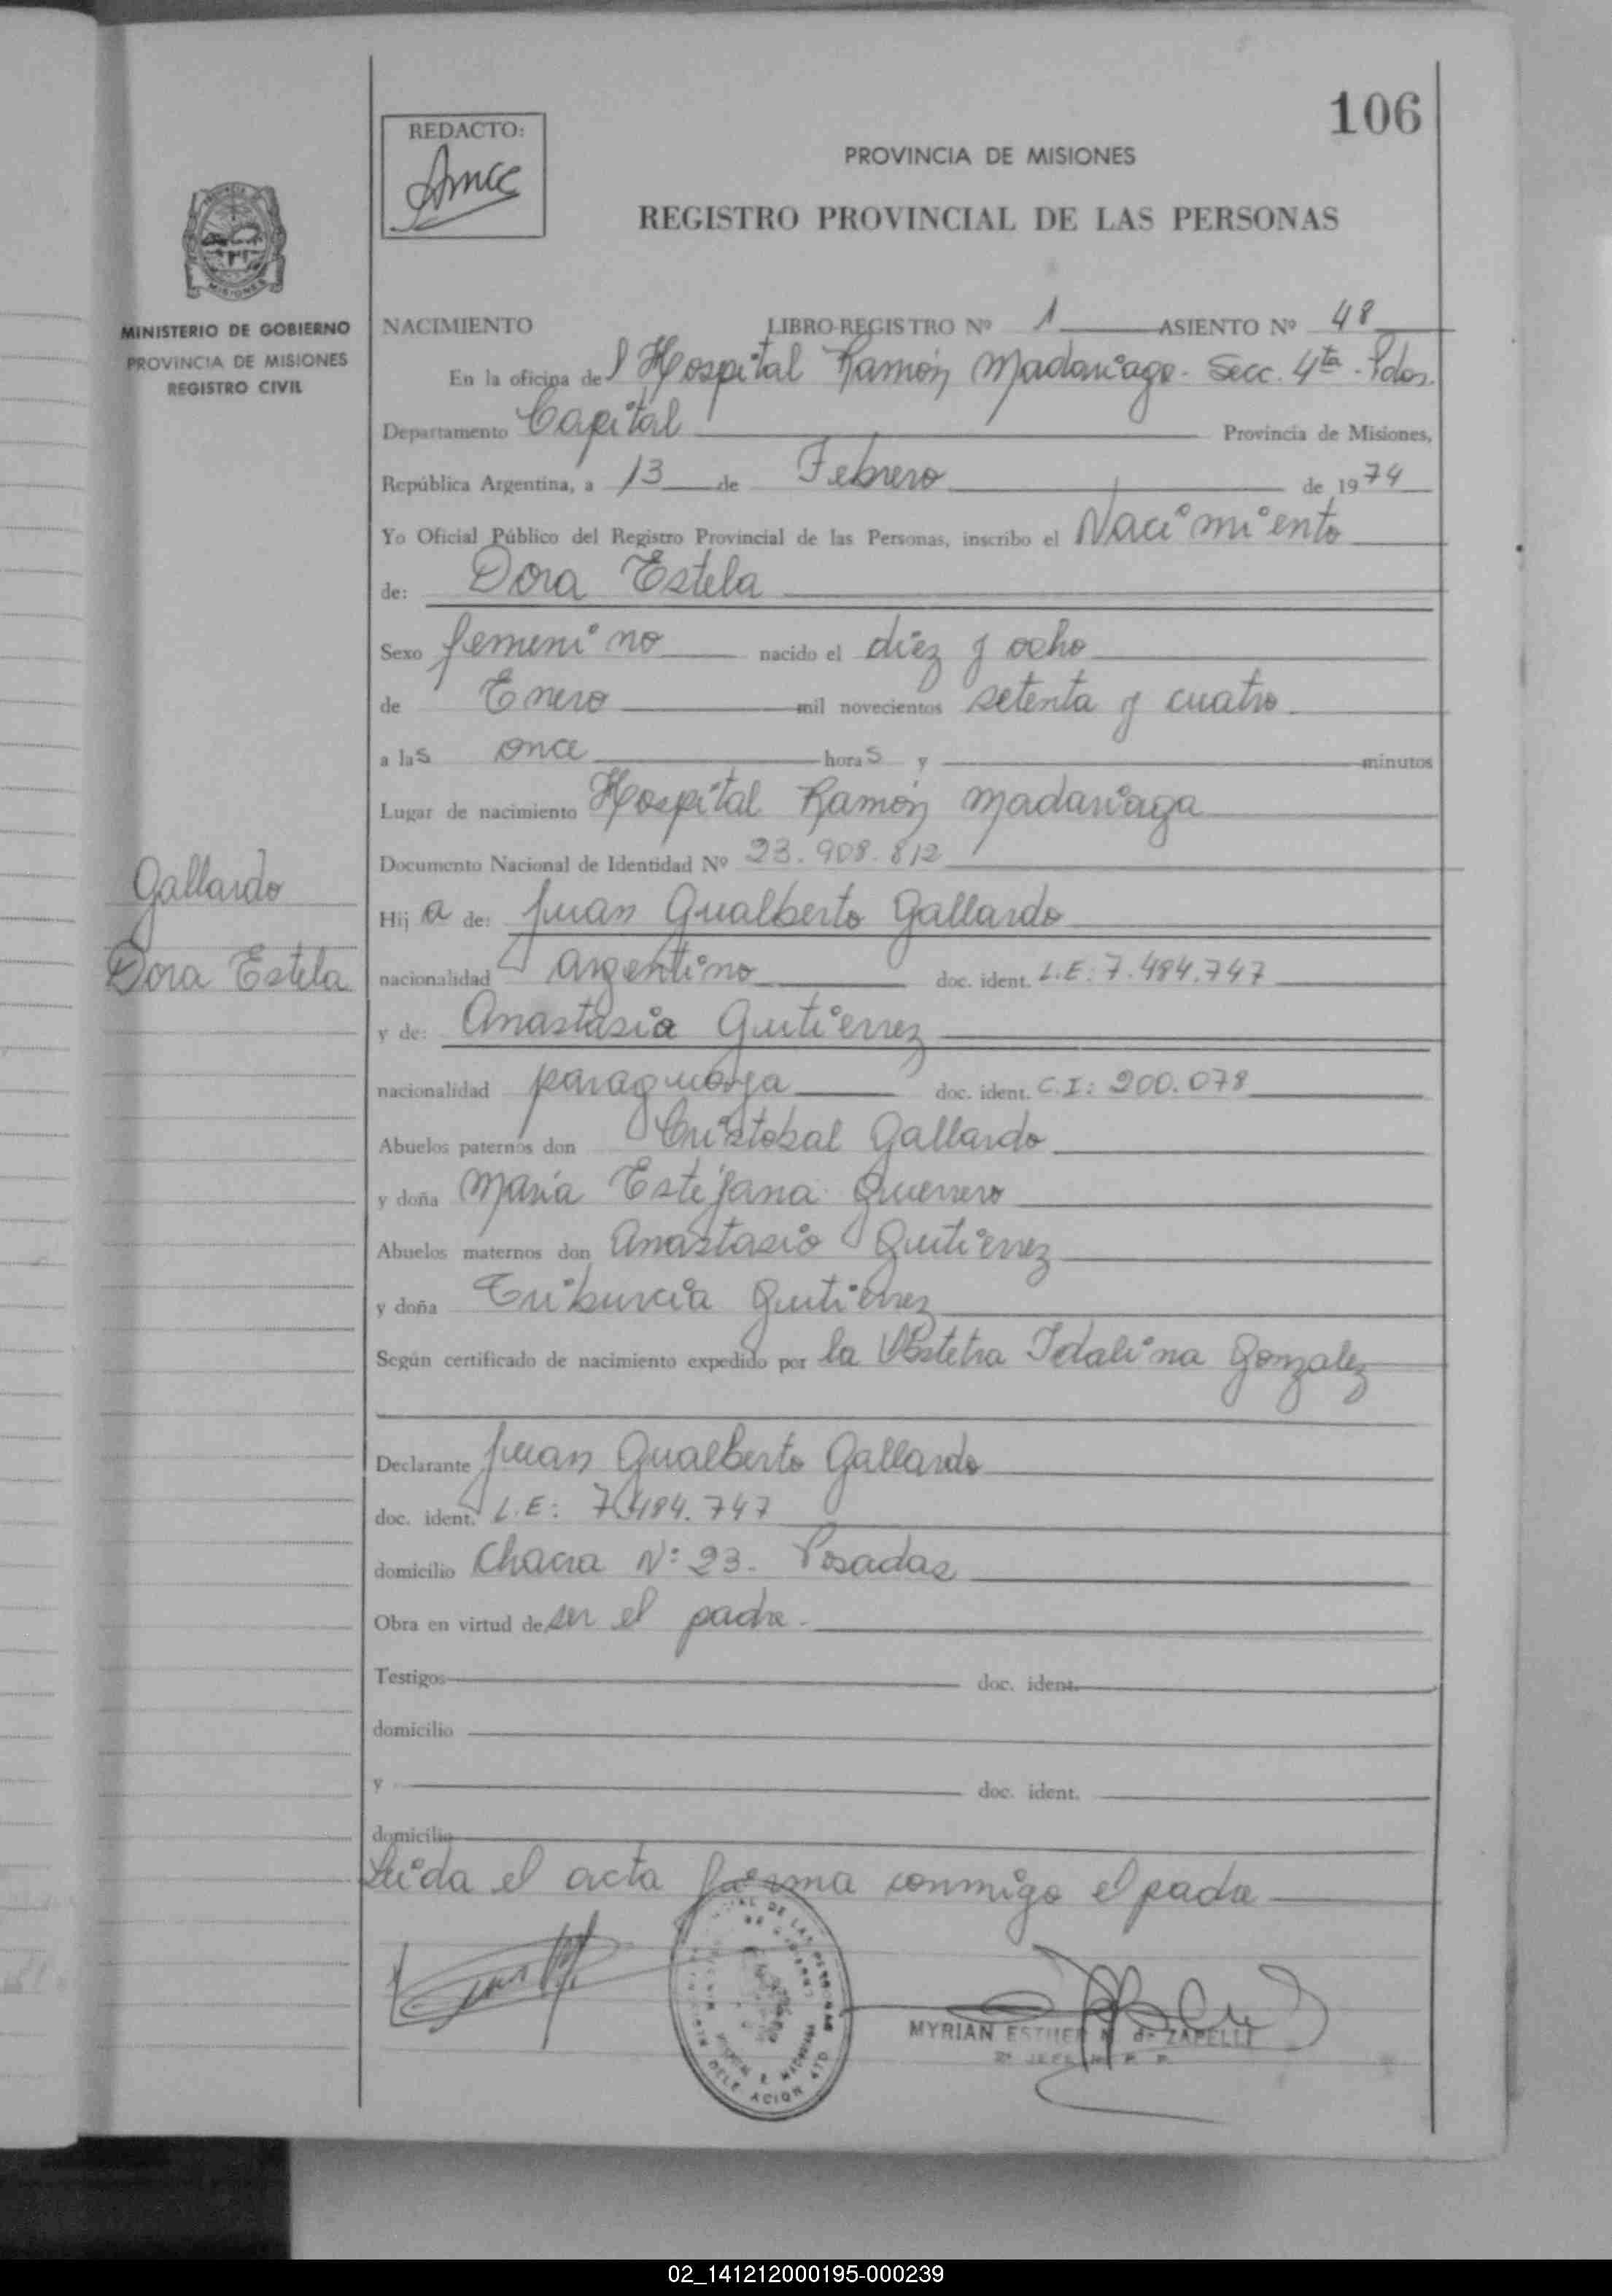 106
REDACTO:
PROVINCIA DE MISIONES
REGISTRO PROVINCIAL DE LAS PERSONAS
MISIONES
MINISTERIO DE GOBIERNO
PROVINCIA DE MISIONES
REGISTRO CIVIL
NACIMIENTO LIBRO-REGISTRO Nº 1 ASIENTO Nº 48
En la oficina del Hospital Ramón Madariaga - Secc. 4ta - Pdas.
Departamento Capital Provincia de Misiones,
República Argentina, a 13 de Febrero de 1974
Yo Oficial Público del Registro Provincial de las Personas, inscribo el Nacimiento
de: Dora Estela
Sexo femenino nacido el diez y ocho
de Enero mil novecientos setenta y cuatro
a las once horas y minutos
Lugar de nacimiento Hospital Ramón Madariaga
Documento Nacional de Identidad Nº 23.908.812
Gallardo
Dora Estela
Hija de: Juan Gualberto Gallardo
nacionalidad argentino doc. ident. L.E: 7.484.747
y de: Anastasia Gutierrez
nacionalidad paraguaya doc. ident. C.I: 200.078
Abuelos paternos don Cristobal Gallardo
y doña María Estefana Guerrero
Abuelos maternos don Anastasio Gutierrez
y doña Triburcia Gutierrez
Según certificado de nacimiento expedido por la Obstetra Idalina Gonzalez
Declarante Juan Gualberto Gallardo
doc. ident. L.E: 7.484.747
domicilio Chacra Nº 23. Posadas
Obra en virtud de ser el padre.
Testigos doc. ident.
domicilio
y doc. ident.
domicilio
Leida el acta firma conmigo el padre
MYRIAN ESTHER N. de ZAPELLI
02_141212000195-000239